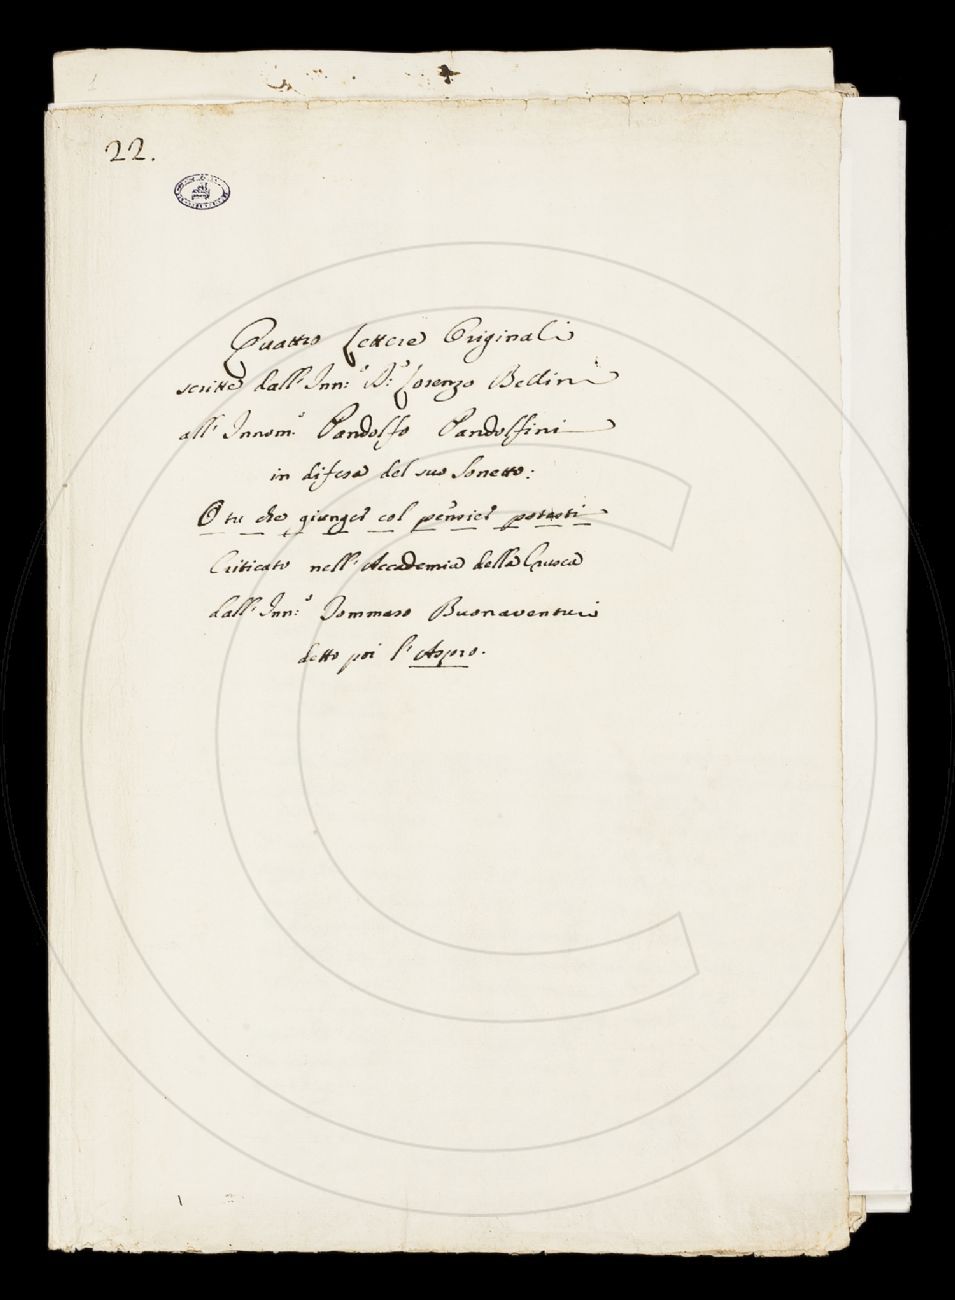 22.
Quattro Lettere Originali
scritte dall' Inn:º D:º Lorenzo Bellini
all' Innom.º Pandolfo Pandolfini
in difesa del suo Sonetto:
O tu che giunger col pensier
Criticato nell' Accademia della Crusca
dall' Inn:º Tommaso Buonaventuri
detto poi l' Aspro.